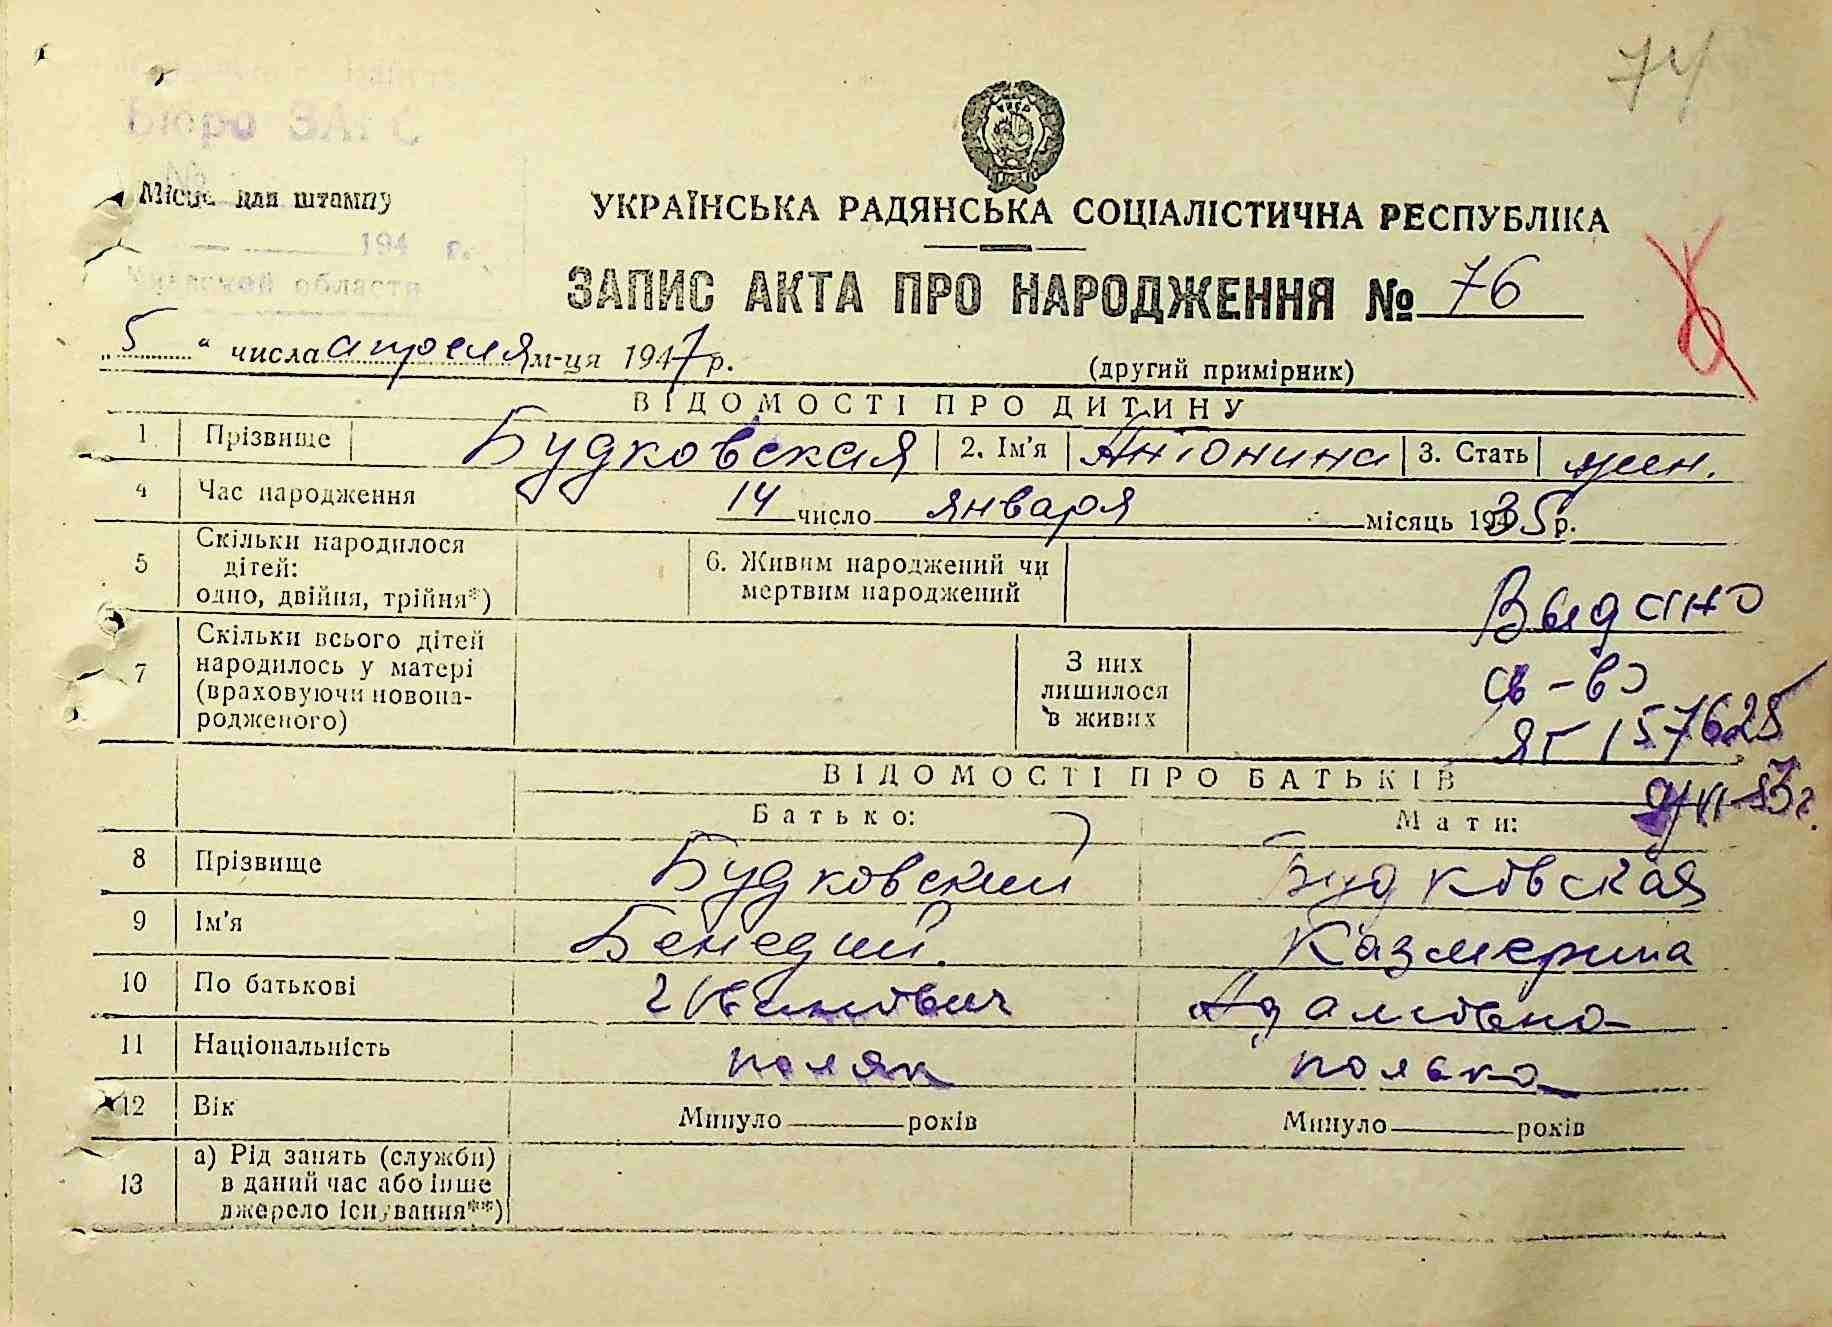 74
Бюро ЗАГС
№
Місце для штампу
194 г.
области
УКРАЇНСЬКА РАДЯНСЬКА СОЦІАЛІСТИЧНА РЕСПУБЛІКА
ЗАПИС АКТА ПРО НАРОДЖЕННЯ № 76
„5“ числа апреля м-ця 1947 р.
(другий примірник)
ВІДОМОСТІ ПРО ДИТИНУ
1 Прізвище Будковская 2. Ім'я Антонина 3. Стать жен.
4 Час народження 14 число января місяць 1935 р.
5 Скільки народилося дітей: одно, двійня, трійня*) 6. Живим народжений чи мертвим народжений
Выдано
7 Скільки всього дітей народилось у матері (враховуючи новона-родженого) З них лишилося в живих
св-во
ЯГ 157625
ВІДОМОСТІ ПРО БАТЬКІВ
Батько: Мати:
8 Прізвище Будковский Будковская
9 Ім'я
10 По батькові Адамовна
11 Національність поляк полька
12 Вік Минуло років Минуло років
13 а) Рід занять (служби) в даний час або інше джерело існування**)